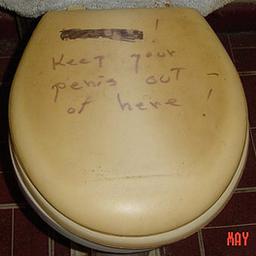 !
Keep your
penis OUT
of here !
MAY